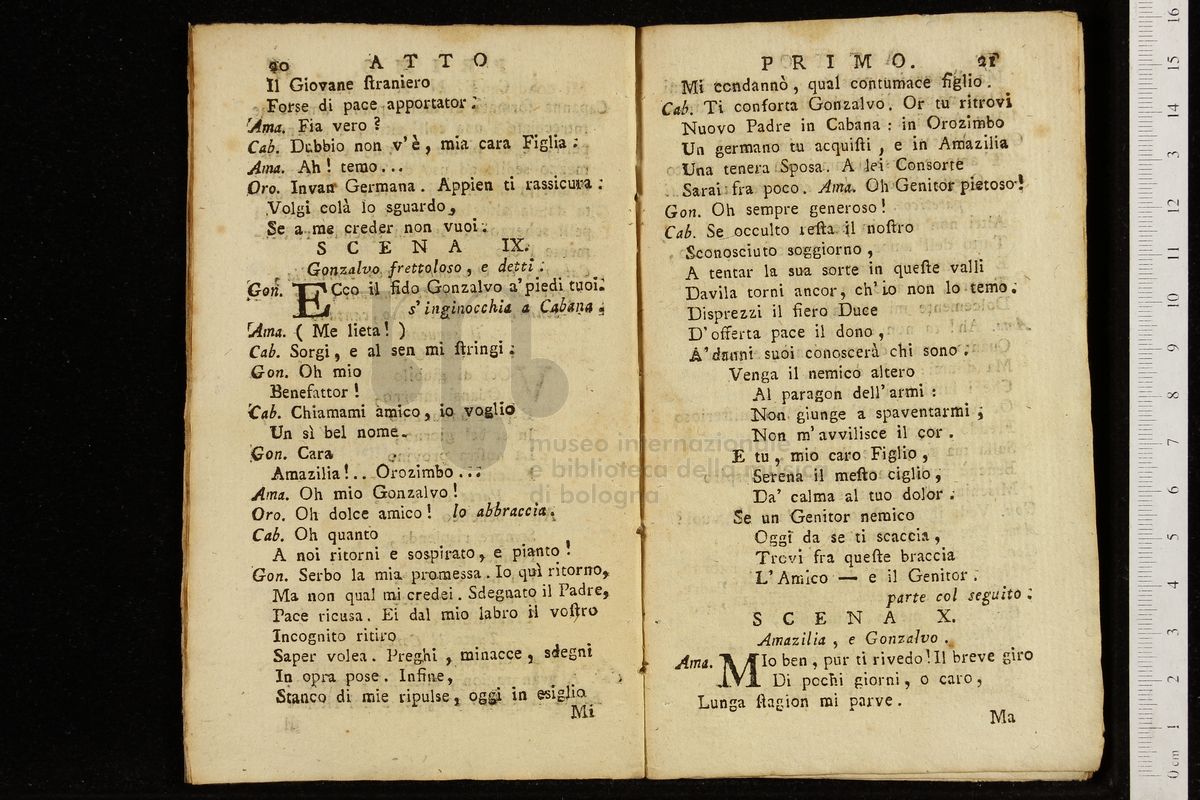 20 ATTO
Il Giovane ſtraniero
Forse di pace apportator.
Ama. Fia vero?
Cab. Dubbio non v'è, mia cara Figlia.
Ama. Ah! temo...
Oro. Invan Germana. Appien ti rassicura:
Volgi colà lo sguardo,
Se a me creder non vuoi.
SCENA IX.
Gonzalvo frettoloso, e detti.
Gon. ECco il fido Gonzalvo a' piedi tuoi.
s'inginocchia a Cabana.
Ama. ( Me lieta! )
Cab. Sorgi, e al sen mi ſtringi.
Gon. Oh mio
Benefattor!
Cab. Chiamami amico, io voglio
Un sì bel nome.
Gon. Cara
Amazilia!.. Orozimbo...
Ama. Oh mio Gonzalvo!
Oro. Oh dolce amico! lo abbraccia.
Cab. Oh quanto
A noi ritorni e sospirato, e pianto!
Gon. Serbo la mia promessa. Io quì ritorno,
Ma non qual mi credei. Sdegnato il Padre,
Pace ricusa. Ei dal mio labro il voſtro
Incognito ritiro
Saper volea. Preghi, minacce, sdegni
In opra pose. Infine,
Stanco di mie ripulse, oggi in esiglio
Mi
PRIMO. 21
Mi condannò, qual contumace figlio.
Cab. Ti conforta Gonzalvo. Or tu ritrovi
Nuovo Padre in Cabana: in Orozimbo
Un germano tu acquiſti, e in Amazilia
Una tenera Sposa. A lei Consorte
Sarai fra poco. Ama. Oh Genitor pietoso!
Gon. Oh sempre generoso!
Cab. Se occulto reſta il noſtro
Sconosciuto soggiorno,
A tentar la sua sorte in queſte valli
Davila torni ancor, ch'io non lo temo.
Disprezzi il fiero Duce
D'offerta pace il dono,
A' danni suoi conoscerà chi sono.
Venga il nemico altero
Al paragon dell'armi:
Non giunge a spaventarmi;
Non m'avvilisce il cor.
E tu, mio caro Figlio,
Serena il meſto ciglio,
Da' calma al tuo dolor.
Se un Genitor nemico
Oggi da se ti scaccia,
Trovi fra queſte braccia
L'Amico — e il Genitor.
parte col seguito.
SCENA X.
Amazilia, e Gonzalvo.
Ama. MIo ben, pur ti rivedo! Il breve giro
Di pochi giorni, o caro,
Lunga ſtagion mi parve.
Ma
museo internazionale
e biblioteca della musica
di bologna
0 cm 1 2 3 4 5 6 7 8 9 10 11 12 13 14 15 16